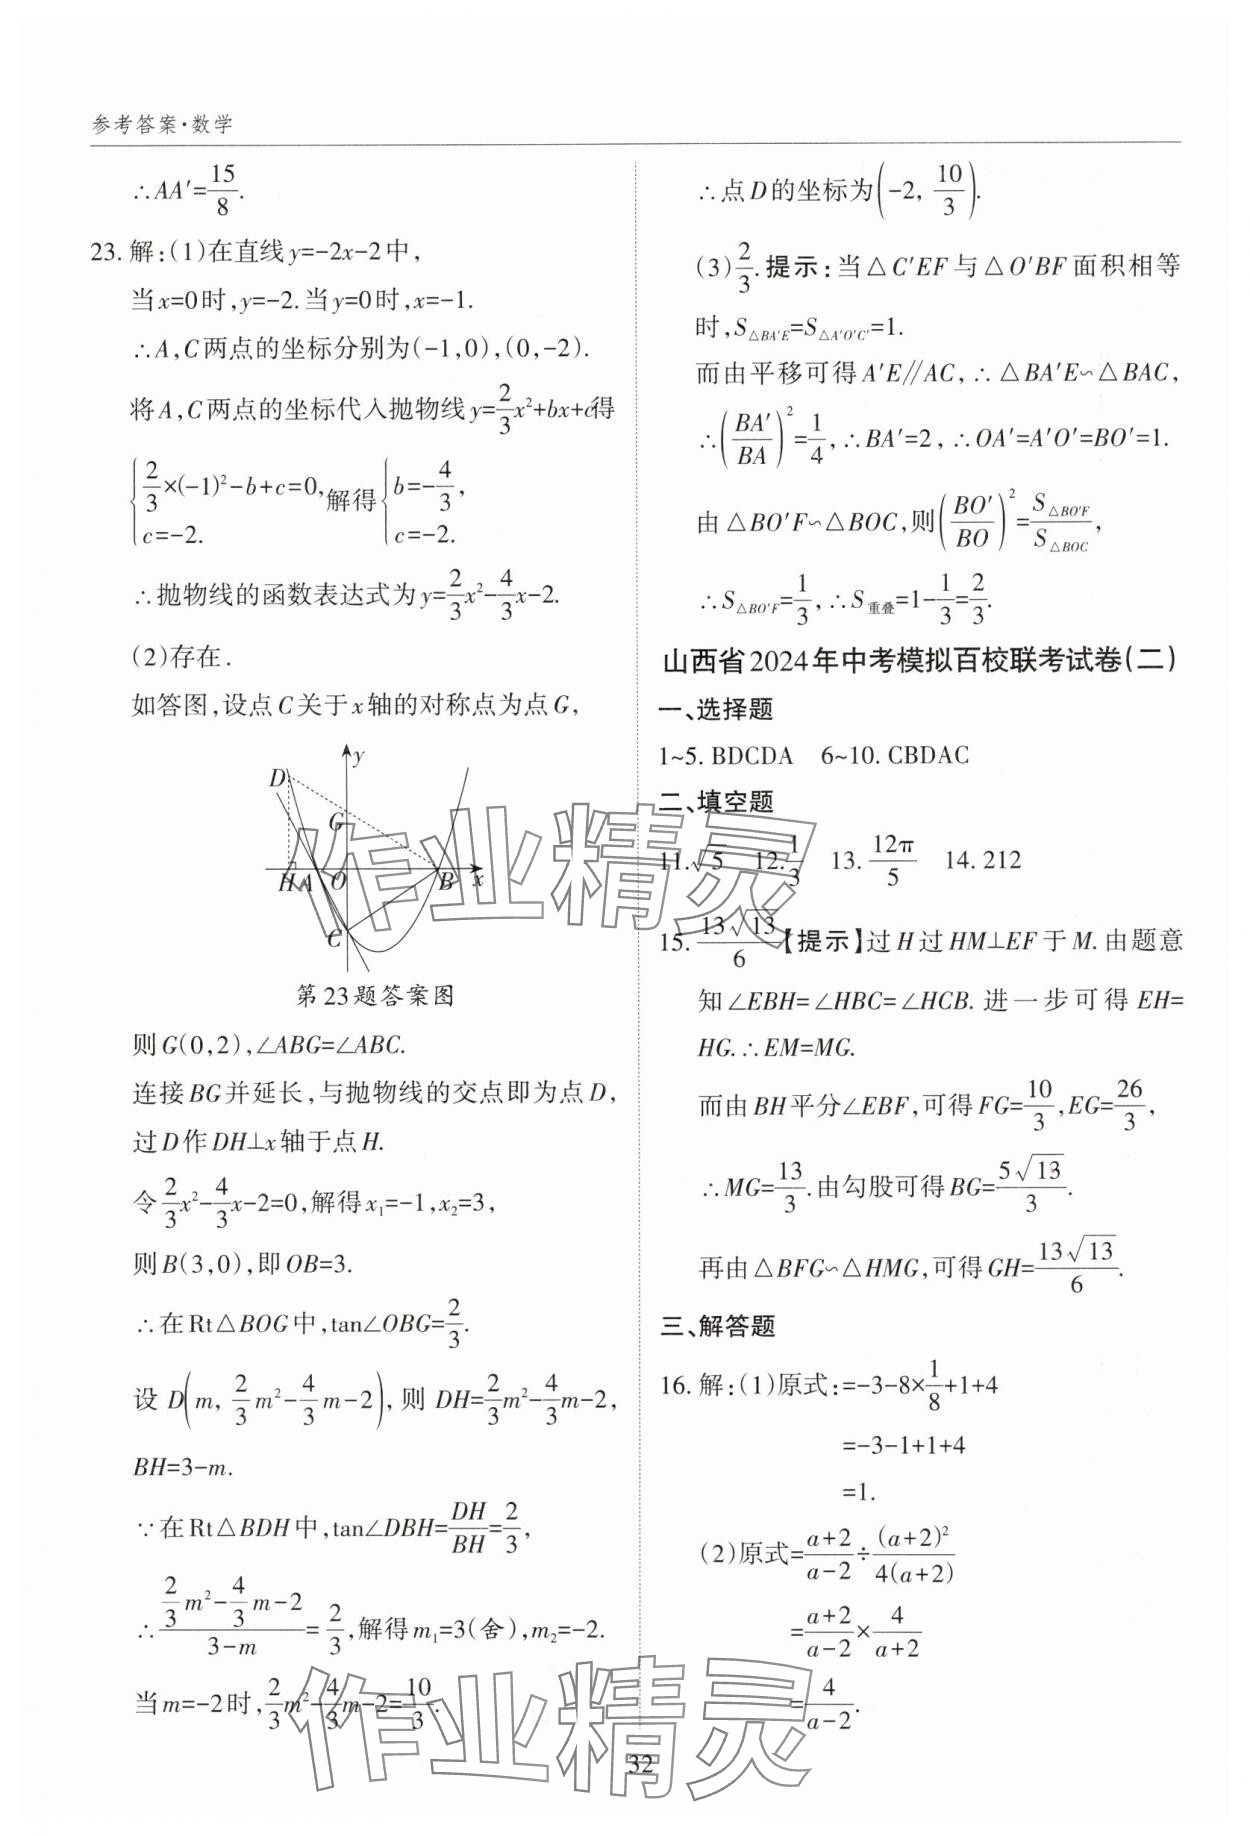 参考答案·数学
∴AA′=15/8.
23. 解:(1)在直线y=-2x-2中,
当x=0时,y=-2.当y=0时,x=-1.
∴A,C两点的坐标分别为(-1,0),(0,-2).
将A,C两点的坐标代入抛物线y=2/3x²+bx+c得
{2/3×(-1)²-b+c=0, c=-2. 解得{b=-4/3, c=-2.
∴抛物线的函数表达式为y=2/3x²-4/3x-2.
(2)存在.
如答图,设点C关于x轴的对称点为点G,
D y G H A O B x C
第23题答案图
则G(0,2),∠ABG=∠ABC.
连接BG并延长,与抛物线的交点即为点D,
过D作DH⊥x轴于点H.
令2/3x²-4/3x-2=0,解得x₁=-1,x₂=3,
则B(3,0),即OB=3.
∴在Rt△BOG中,tan∠OBG=2/3.
设D(m, 2/3m²-4/3m-2),则DH=2/3m²-4/3m-2,
BH=3-m.
∵在Rt△BDH中,tan∠DBH=DH/BH=2/3,
∴(2/3m²-4/3m-2)/(3-m)=2/3,解得m₁=3(舍),m₂=-2.
当m=-2时,2/3m²-4/3m-2=10/3.
∴点D的坐标为(-2, 10/3).
(3)2/3.提示:当△C′EF与△O′BF面积相等
时,S△BA′E=S△A′O′C′=1.
而由平移可得A′E∥AC,∴△BA′E∽△BAC,
∴(BA′/BA)²=1/4,∴BA′=2,∴OA′=A′O′=BO′=1.
由△BO′F∽△BOC,则(BO′/BO)²=S△BO′F/S△BOC,
∴S△BO′F=1/3,∴S重叠=1-1/3=2/3.
山西省2024年中考模拟百校联考试卷(二)
一、选择题
1~5. BDCDA 6~10. CBDAC
二、填空题
11.√5 12.1/3 13.12π/5 14.212
15.13√13/6【提示】过H过HM⊥EF于M.由题意
知∠EBH=∠HBC=∠HCB.进一步可得EH=
HG.∴EM=MG.
而由BH平分∠EBF,可得FG=10/3,EG=26/3,
∴MG=13/3.由勾股可得BG=5√13/3.
再由△BFG∽△HMG,可得GH=13√13/6.
三、解答题
16. 解:(1)原式:=-3-8×1/8+1+4
=-3-1+1+4
=1.
(2)原式=(a+2)/(a-2)÷(a+2)²/4(a+2)
=(a+2)/(a-2)×4/(a+2)
=4/(a-2).
32
作业精灵
作业精灵